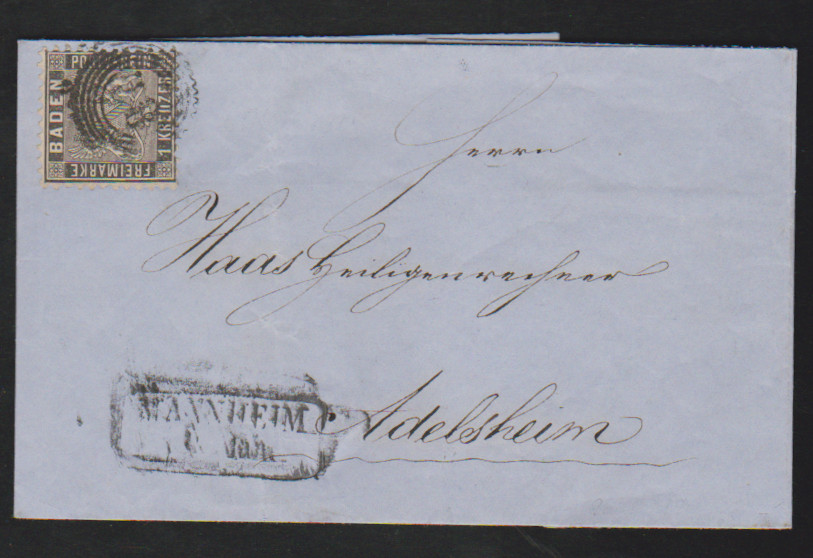 BADEN
POSTVEREIN
1 KREUZER
FREIMARKE
Herrn
Haas Heiligenrechner
Adelsheim
MANNHEIM